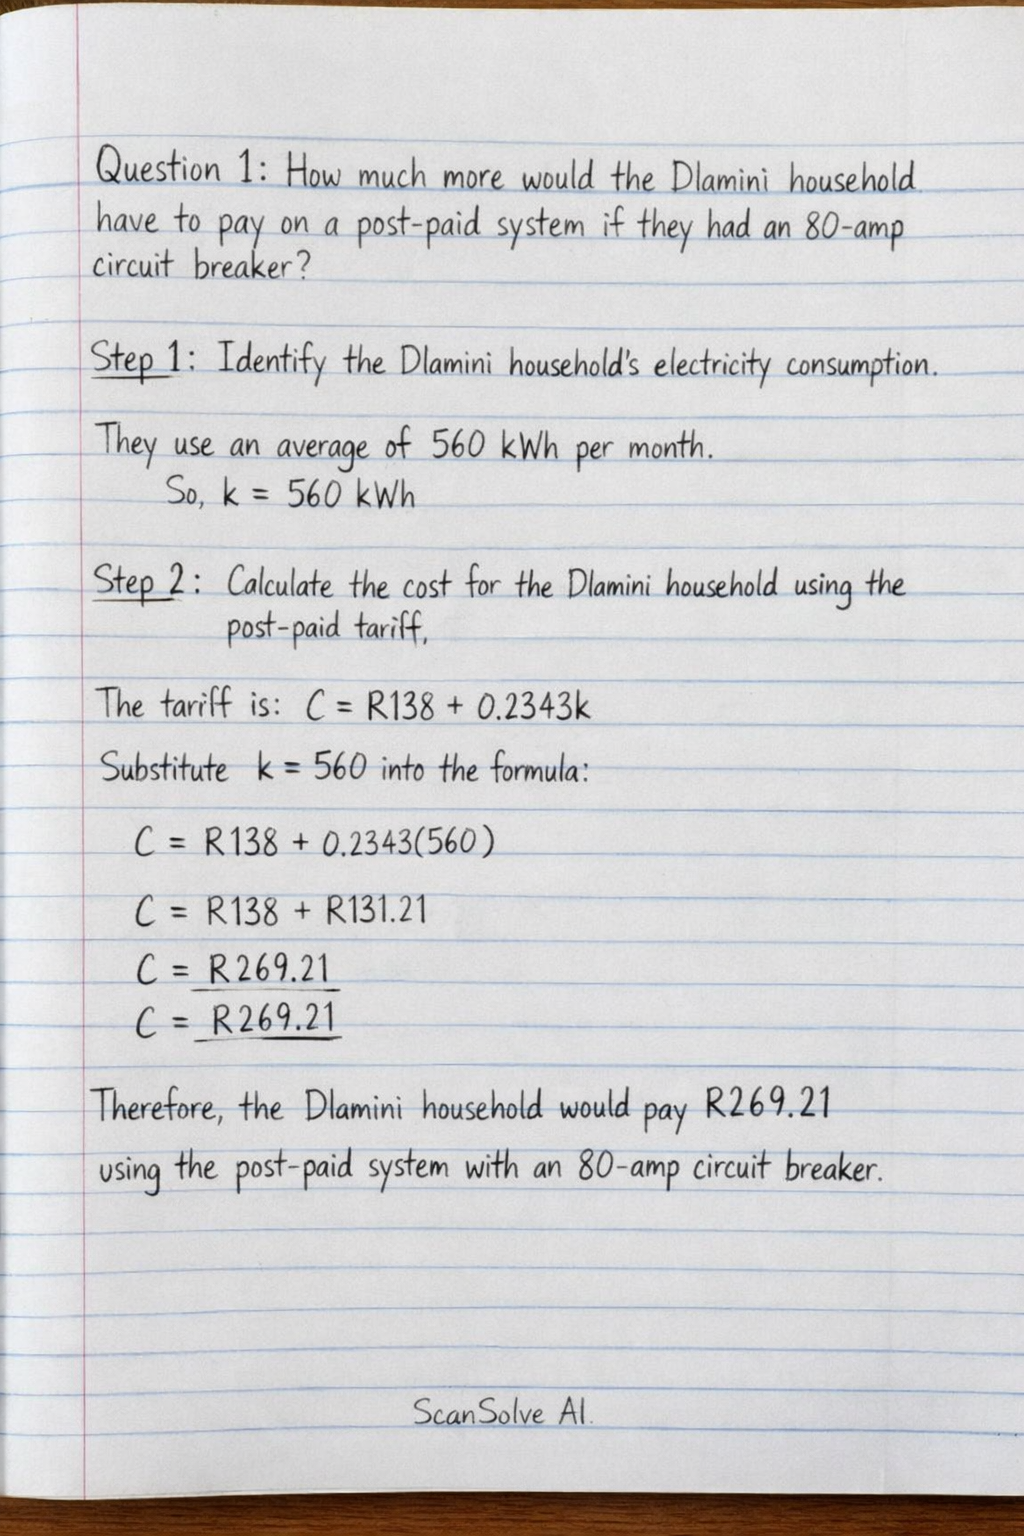 Question 1: How much more would the Dlamini household
have to pay on a post-paid system if they had an 80-amp
circuit breaker?
Step 1: Identify the Dlamini household's electricity consumption.
They use an average of 560 kWh per month.
So, k = 560 kWh
Step 2: Calculate the cost for the Dlamini household using the
post-paid tariff.
The tariff is: C = R138 + 0.2343k
Substitute k = 560 into the formula:
C = R138 + 0.2343(560)
C = R138 + R131.21
C = R269.21
C = R269.21
Therefore, the Dlamini household would pay R269.21
using the post-paid system with an 80-amp circuit breaker.
ScanSolve AI.